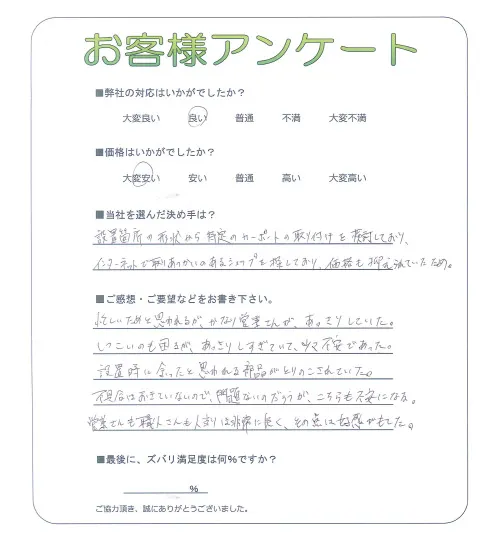 お客様アンケート
■弊社の対応はいかがでしたか？
大変良い 良い 普通 不満 大変不満
■価格はいかがでしたか？
大変安い 安い 普通 高い 大変高い
■当社を選んだ決め手は？
設置箇所の形状から特定のカーポートの取り付けを検討しており、
インターネットで取りあつかいのあるショップを探しており、価格も抑えられていたため。
■ご感想・ご要望などをお書き下さい。
忙しいためと思われるが、かなり営業さんが、あっさりしていた。
しつこいのも困るが、あっさりしすぎていて、少々不安であった。
設置時に余ったと思われる部品がとりのこされていた。
不具合はおきていないので、問題ないのだろうが、こちらも不安になる。
営業さんも職人さんも人当りは非常に良く、その点は好感がもてた。
■最後に、ズバリ満足度は何％ですか？
％
ご協力頂き、誠にありがとうございました。